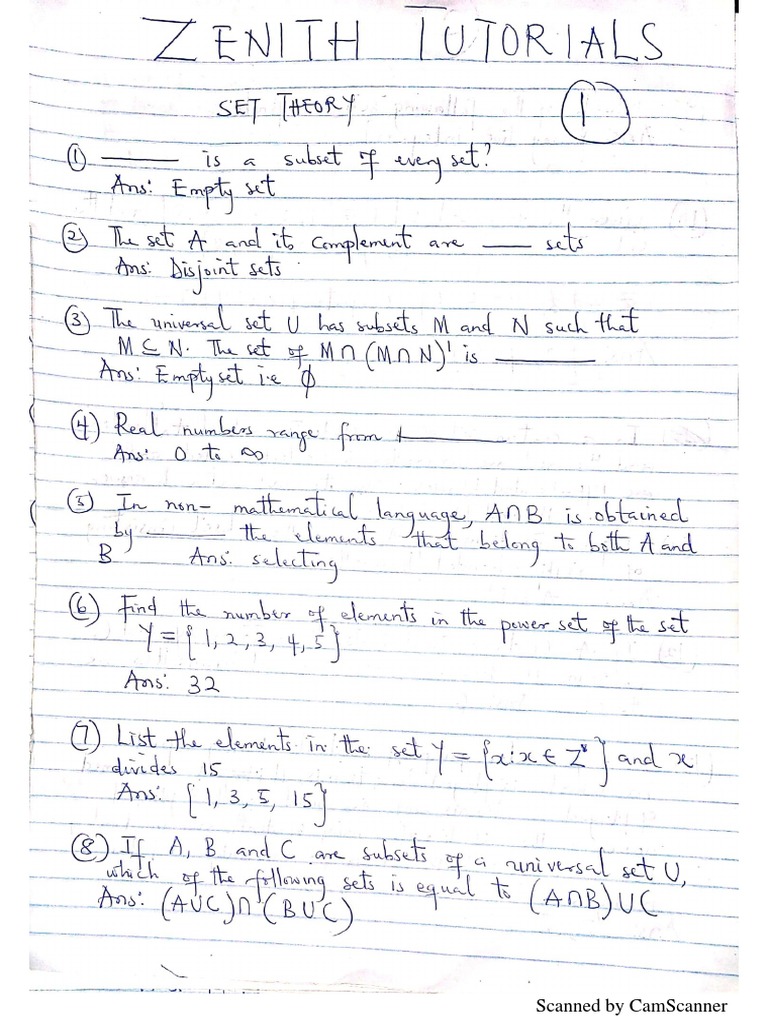 ZENITH TUTORIALS
SET THEORY
1
① ______ is a subset of every set?
Ans: Empty set
② The set A and its complement are ____ sets
Ans: Disjoint sets
③ The universal set U has subsets M and N such that
M ⊆ N. The set of M∩(M∩N)' is ________
Ans: Empty set i.e ϕ
④ Real numbers range from ________
Ans: 0 to ∞
⑤ In non-mathematical language, A∩B is obtained
by ______ the elements that belong to both A and
B Ans: selecting
⑥ Find the number of elements in the power set of the set
Y = {1, 2, 3, 4, 5}
Ans: 32
⑦ List the elements in the set Y = {x: x ∈ Z} and x
divides 15
Ans: {1, 3, 5, 15}
⑧ If A, B and C are subsets of a universal set U,
which of the following sets is equal to (A∩B)∪C
Ans: (A∪C)∩(B∪C)
Scanned by CamScanner